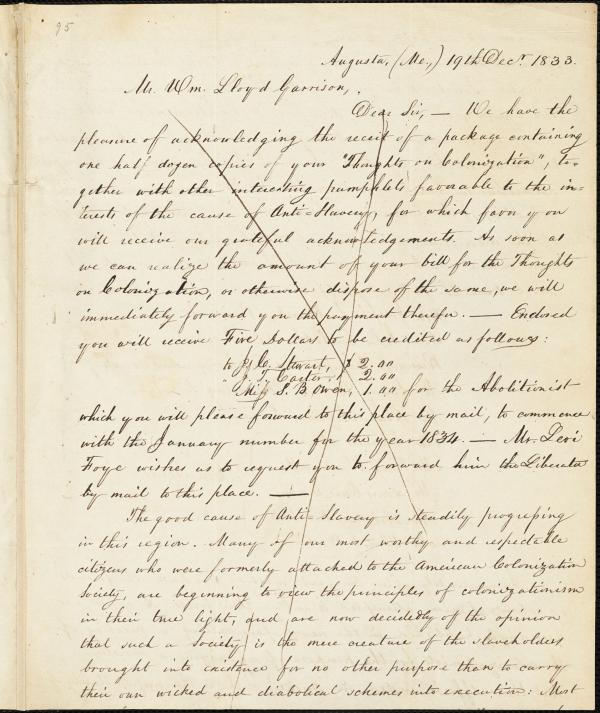 95
Augusta, (Me,) 19th Decr. 1833.
Mr. Wm. Lloyd Garrison,
Dear Sir, — We have the
pleasure of acknowledging the receit of a package containing
one half dozen copies of your "Thoughts on Colonization", to-
gether with other interesting pamphlets favorable to the in-
terests of the cause of Anti-Slavery, for which favor you
will receive our grateful acknowledgements. As soon as
we can realize the amount of your bill for the Thoughts
on Colonization, or otherwise dispose of the same, we will
immediately forward you the payment therefor. — Enclosed
you will receive Five Dollars to be credited as follows:
to J. C. Stewart, $ 2.00
" J. T. Carter, 2.00
Miss S. B Owen, 1.00 for the Abolitionist
which you will please forward to this place by mail, to commence
with the January number for the year 1834. — Mr. Levi
Foye wishes us to request you to forward him the Liberator
by mail to this place. —
The good cause of Anti-Slavery is steadily progressing
in this region. Many of our most worthy and respectable
citizens who were formerly attached to the American Colonization
Society, are beginning to view the principles of colonizationism
in their true light, and are now decidedly of the opinion
that such a Society is the mere creature of the slaveholders
brought into existence for no other purpose than to carry
their own wicked and diabolical schemes into execution: Most